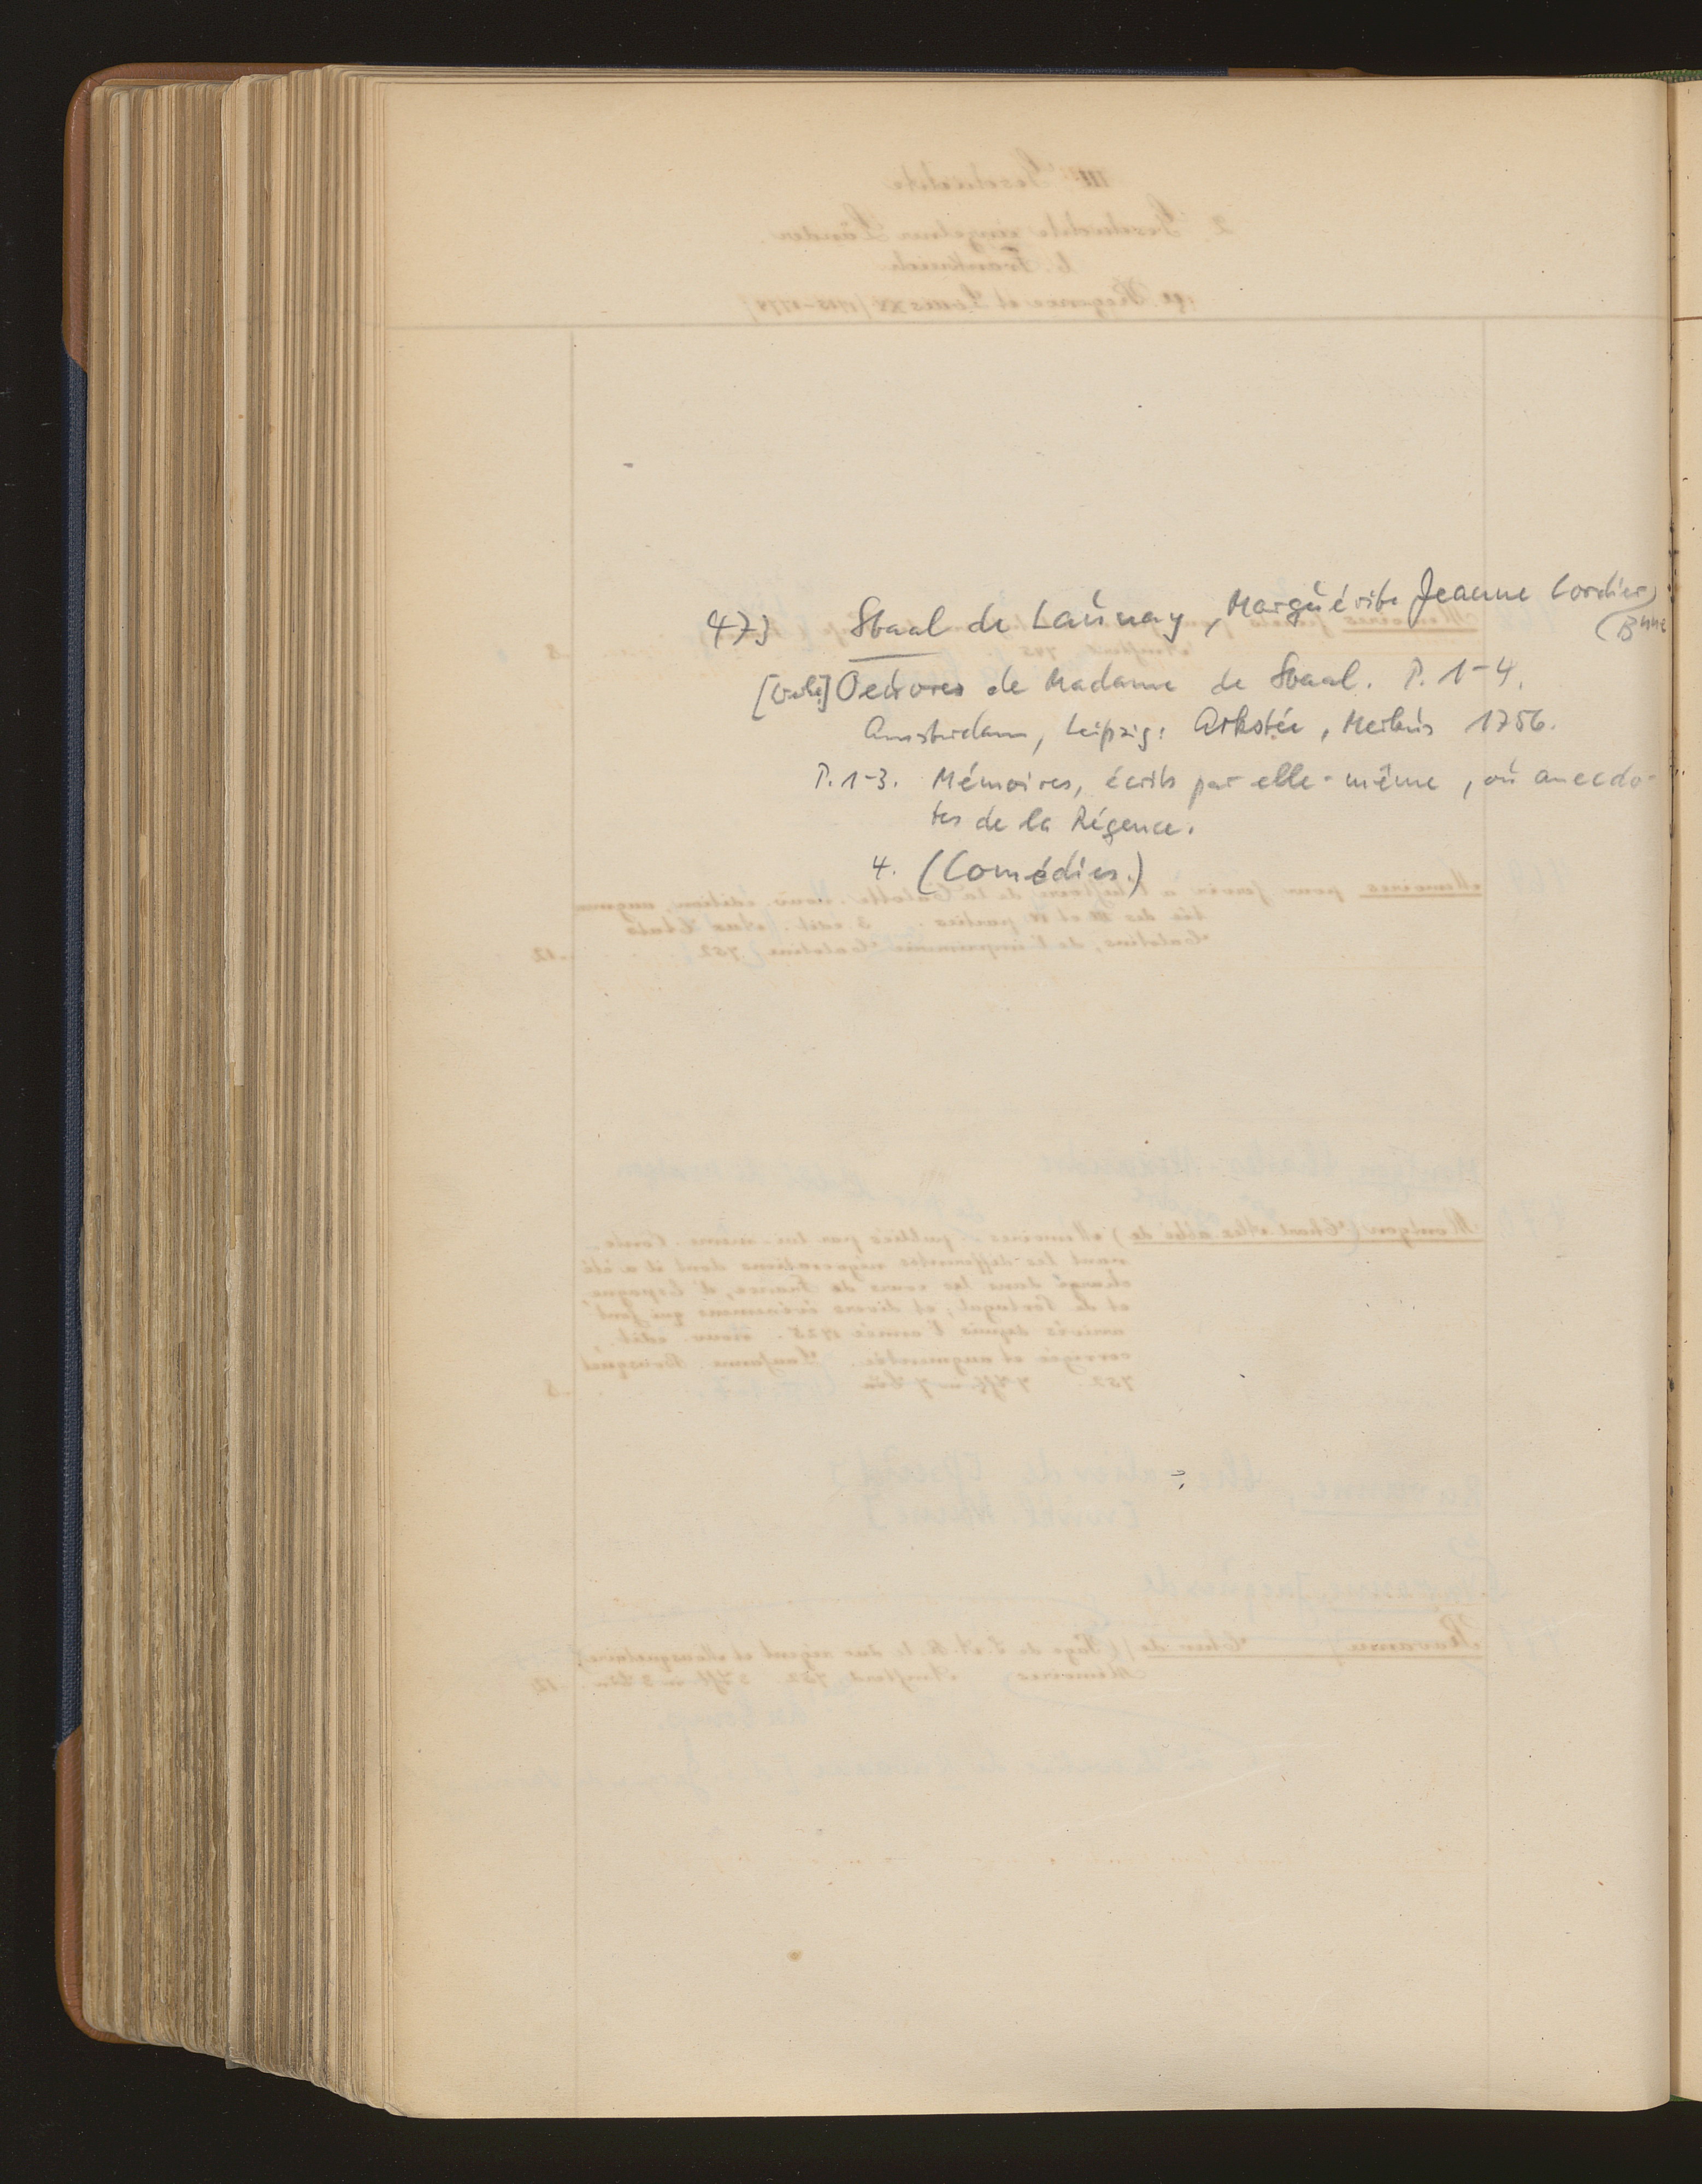 473 Staal de Launay, Marguérite Jeanne Cordier,
(Bnne
Oeuvres de Madame de Staal. P. 1-4.
Amsterdam, Leipzig: Arkstée, Merkus 1756.
P. 1-3. Mémoires, écrits par elle-même, où anecdo-
tes de la Régence.
4. (Comédies.)